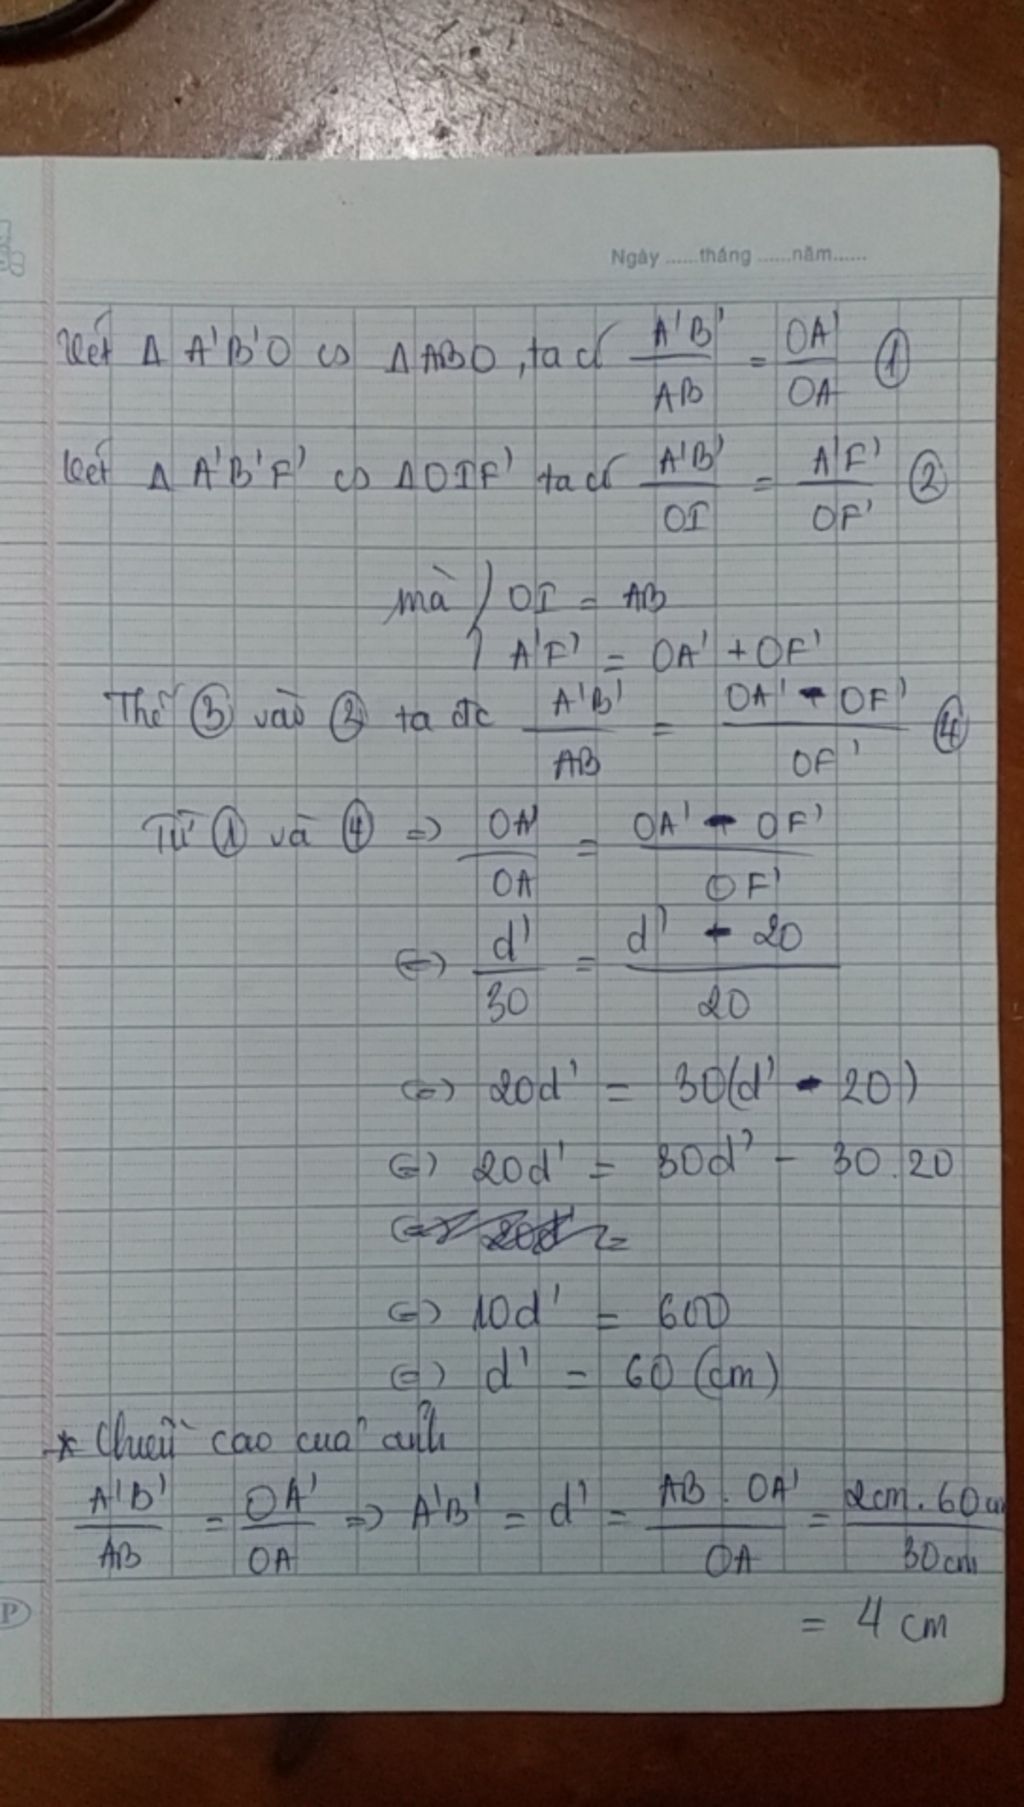 Ngày ......tháng ......năm......
Xét Δ A'B'O ∽ ΔABO, ta có A'B'/AB = OA'/OA ①
Xét Δ A'B'F' ∽ ΔOIF' ta có A'B'/OI = A'F'/OF' ②
mà { OI = AB
A'F' = OA' + OF'
Thế ③ vào ② ta đc A'B'/AB = OA' - OF'/OF' ④
Từ ① và ④ => OA'/OA = OA' - OF'/OF'
<=> d'/30 = d' - 20/20
<=> 20d' = 30(d' - 20)
<=> 20d' = 30d' - 30.20
<=> 10d' = 600
<=> d' = 60 (cm)
* Chiều cao của ảnh
A'B'/AB = OA'/OA => A'B' = d' = AB . OA'/OA = 2cm . 60cm/30cm
= 4 cm
P